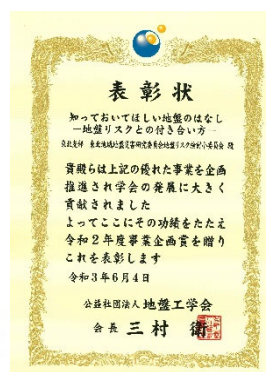 表彰状
知っておいてほしい地盤のはなし
―地盤リスクとの付き合い方―
東北支部 東北地域地盤災害研究委員会地盤リスク検討小委員会 殿
貴殿らは上記の優れた事業を企画
推進され学会の発展に大きく
貢献されました
よってここにその功績をたたえ
令和2年度事業企画賞を贈り
これを表彰します
令和3年6月4日
公益社団法人 地盤工学会
会長 三村 衛